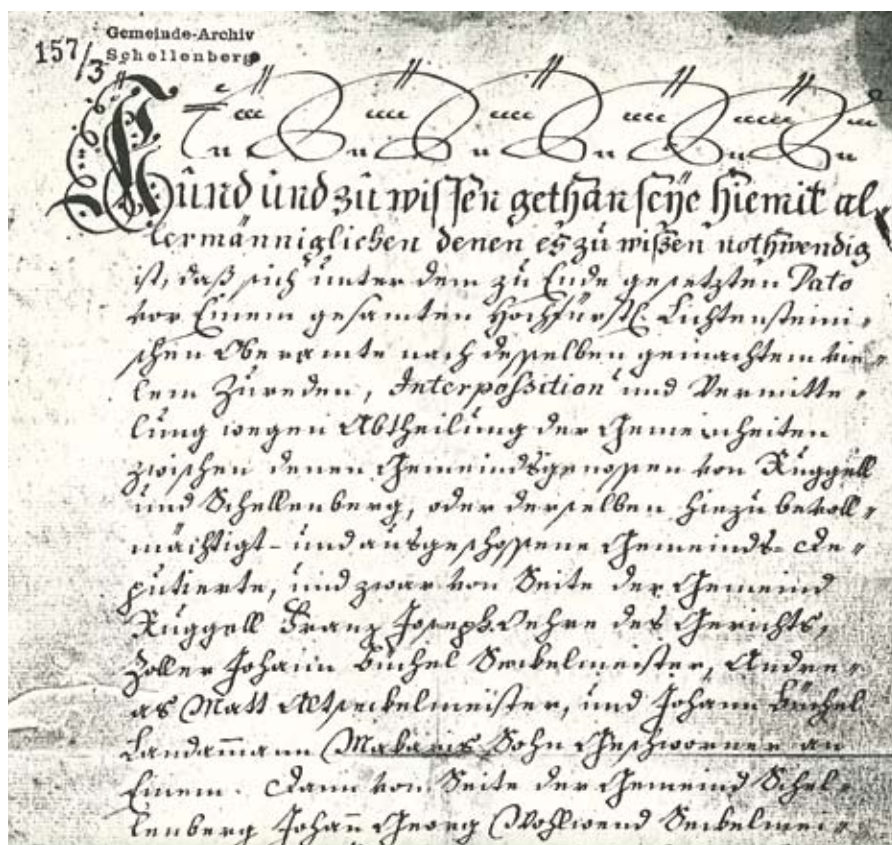 Gemeinde-Archiv
157/3 Schellenberg
Kund und zu wissen gethan seye hiemit al
lermänniglichen denen es zu wißen nothwendig
ist, daß sich unter dem zu Ende gesetzten Dato
vor Einem gesamten Hochfürstl. Lichtensteini-
schen Oberamte nach desselben gemachtem vie-
lem Zureden, Interpossition und Vermitte-
lung wegen Abtheilung der Gemeinheiten
zwischen denen Gemeindsgenossen von Ruggell
und Schellenberg, oder derselben hiezu bevoll-
mächtigt- und ausgeschossene Gemeinds-De-
putierte, und zwar von Seite der Gemeind
Ruggell Franz Joseph Oehre des Gerichts,
Zoller Johann Büchel Seckelmeister, Andre-
as Matt Altseckelmeister, und Johann Büchel
Landammann Sohn Geschworner an
Einem. Dann von Seite der Gemeind Schel-
lenberg Johann Georg Wohlwend Seckelmei-